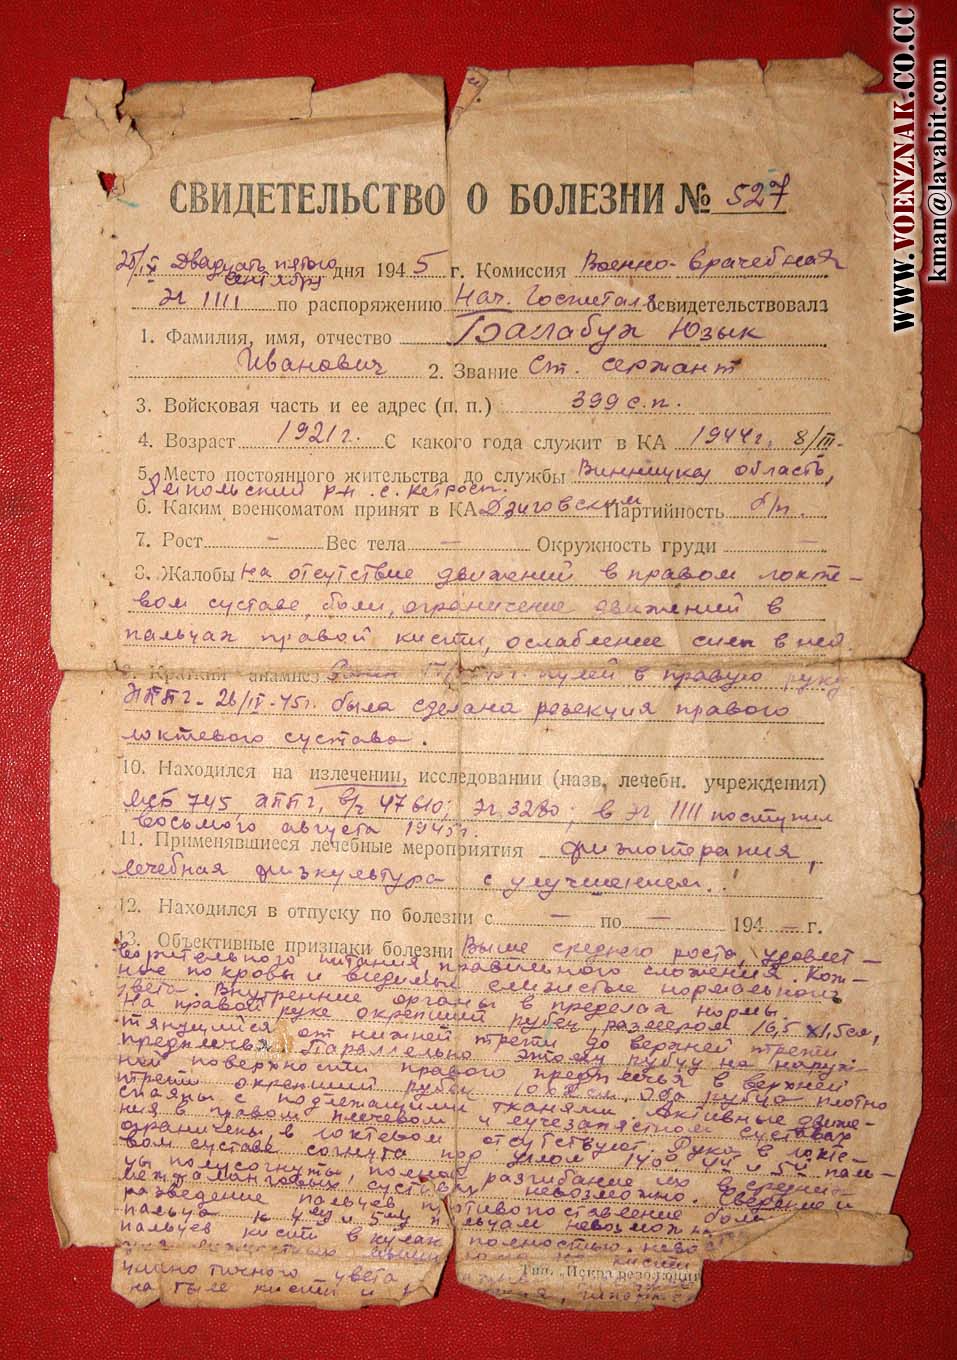 СВИДЕТЕЛЬСТВО О БОЛЕЗНИ № 527
25/IX Двадцать пятого сентября дня 1945 г. Комиссия Военно-врачебная
ЭГ 1111 по распоряжению Нач. Госпиталя освидетельствовала
1. Фамилия, имя, отчество Балабух Юзык
Иванович 2. Звание Ст. сержант
3. Войсковая часть и ее адрес (п. п.) 399 с.п.
4. Возраст 1921 г. С какого года служит в КА 1944 г. 8/III.
5. Место постоянного жительства до службы область,
р-н с.
6. Каким военкоматом принят в КА Дзиговским Партийность б/п.
7. Рост - Вес тела - Окружность груди -
8. Жалобы на отсутствие движений в правом локте-
вом суставе, боли, ограничение движений в
пальцах правой кисти, ослабление силы в ней.
9. Краткий анамнез Ранен пулей в правую руку
ЭППГ - 26/IV-45г. была сделана резекция правого
локтевого сустава.
10. Находился на излечении, исследовании (назв, лечебн. учреждения)
МСБ 745 ЭППГ, в/ч 47610; ЭГ 3280; в ЭГ 1111 поступил
восьмого августа 1945г.
11. Применявшиеся лечебные мероприятия физиотерапия,
лечебная физкультура с улучшением.
12. Находился в отпуску по болезни с - по - 194 - г.
13. Объективные признаки болезни Выше среднего роста, удовлет-
ворительного питания, правильного сложения. Кож-
ные покровы и видимые слизистые нормального
цвета. Внутренние органы в пределах нормы.
На правой руке окрепший рубец, размером 16,5 х 1,5 см,
тянущийся от нижней трети до верхней трети
предплечья. Параллельно этому рубцу на наруж-
ной поверхности правого предплечья в верхней
трети окрепший рубец см, оба рубца плотно
спаяны с подлежащими тканями. Активные движе-
ния в правом плечевом и лучезапястном суставах
ограничены, в локтевом отсутствуют. Рука в локте-
вом суставе согнута под углом 140° 4й и 5й паль-
цы полусогнуты, полное разгибание их в средних
межфаланговых суставах невозможно. Сведение и
разведение пальцев, противопоставление боль
пальца к 4му и 5му пальцам невозможн
пальцев кисти в кулак полностью нево
мышц кисти
цвета
на тыле кисти и
Тип. „Искра революции
www.VOENZNAK.CO.CC
kman@lavabit.com